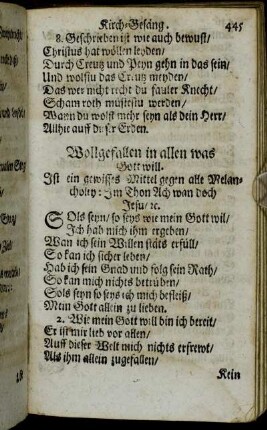 Kirch-Gesäng. 445
8. Geschrieben ist wie auch bewust/
Christus hat wöllen leyden/
Durch Creutz und Peyn gehn in das sein/
Und wolstu das Creutz meyden/
Das wer nicht recht du fauler Knecht/
Schamroth müstestu werden/
Wann du wolst mehr seyn als dein Herr/
Allhie auff dieser Erden.
Wollgefallen in allen was
Gott will.
Ist ein gewisses Mittel gegen alle Melan-
choley: Im Thon Ach wan doch
Jesu/ ec.
SOls seyn/ so seys wie mein Gott wil/
Ich hab mich ihm ergeben/
Wan ich sein Willen stäts erfüll/
So kan ich sicher leben/
Hab ich sein Gnad und folg sein Rath/
So kan mich nichts betrüben/
Sols seyn so seys ich mich befleiß/
Mein Gott allein zu lieben.
2. Wie mein Gott will bin ich bereit/
Er ist mir lieb vor allen/
Auff dieser Welt mich nichts erfrewt/
Als ihm allein zugefallen/
Kein